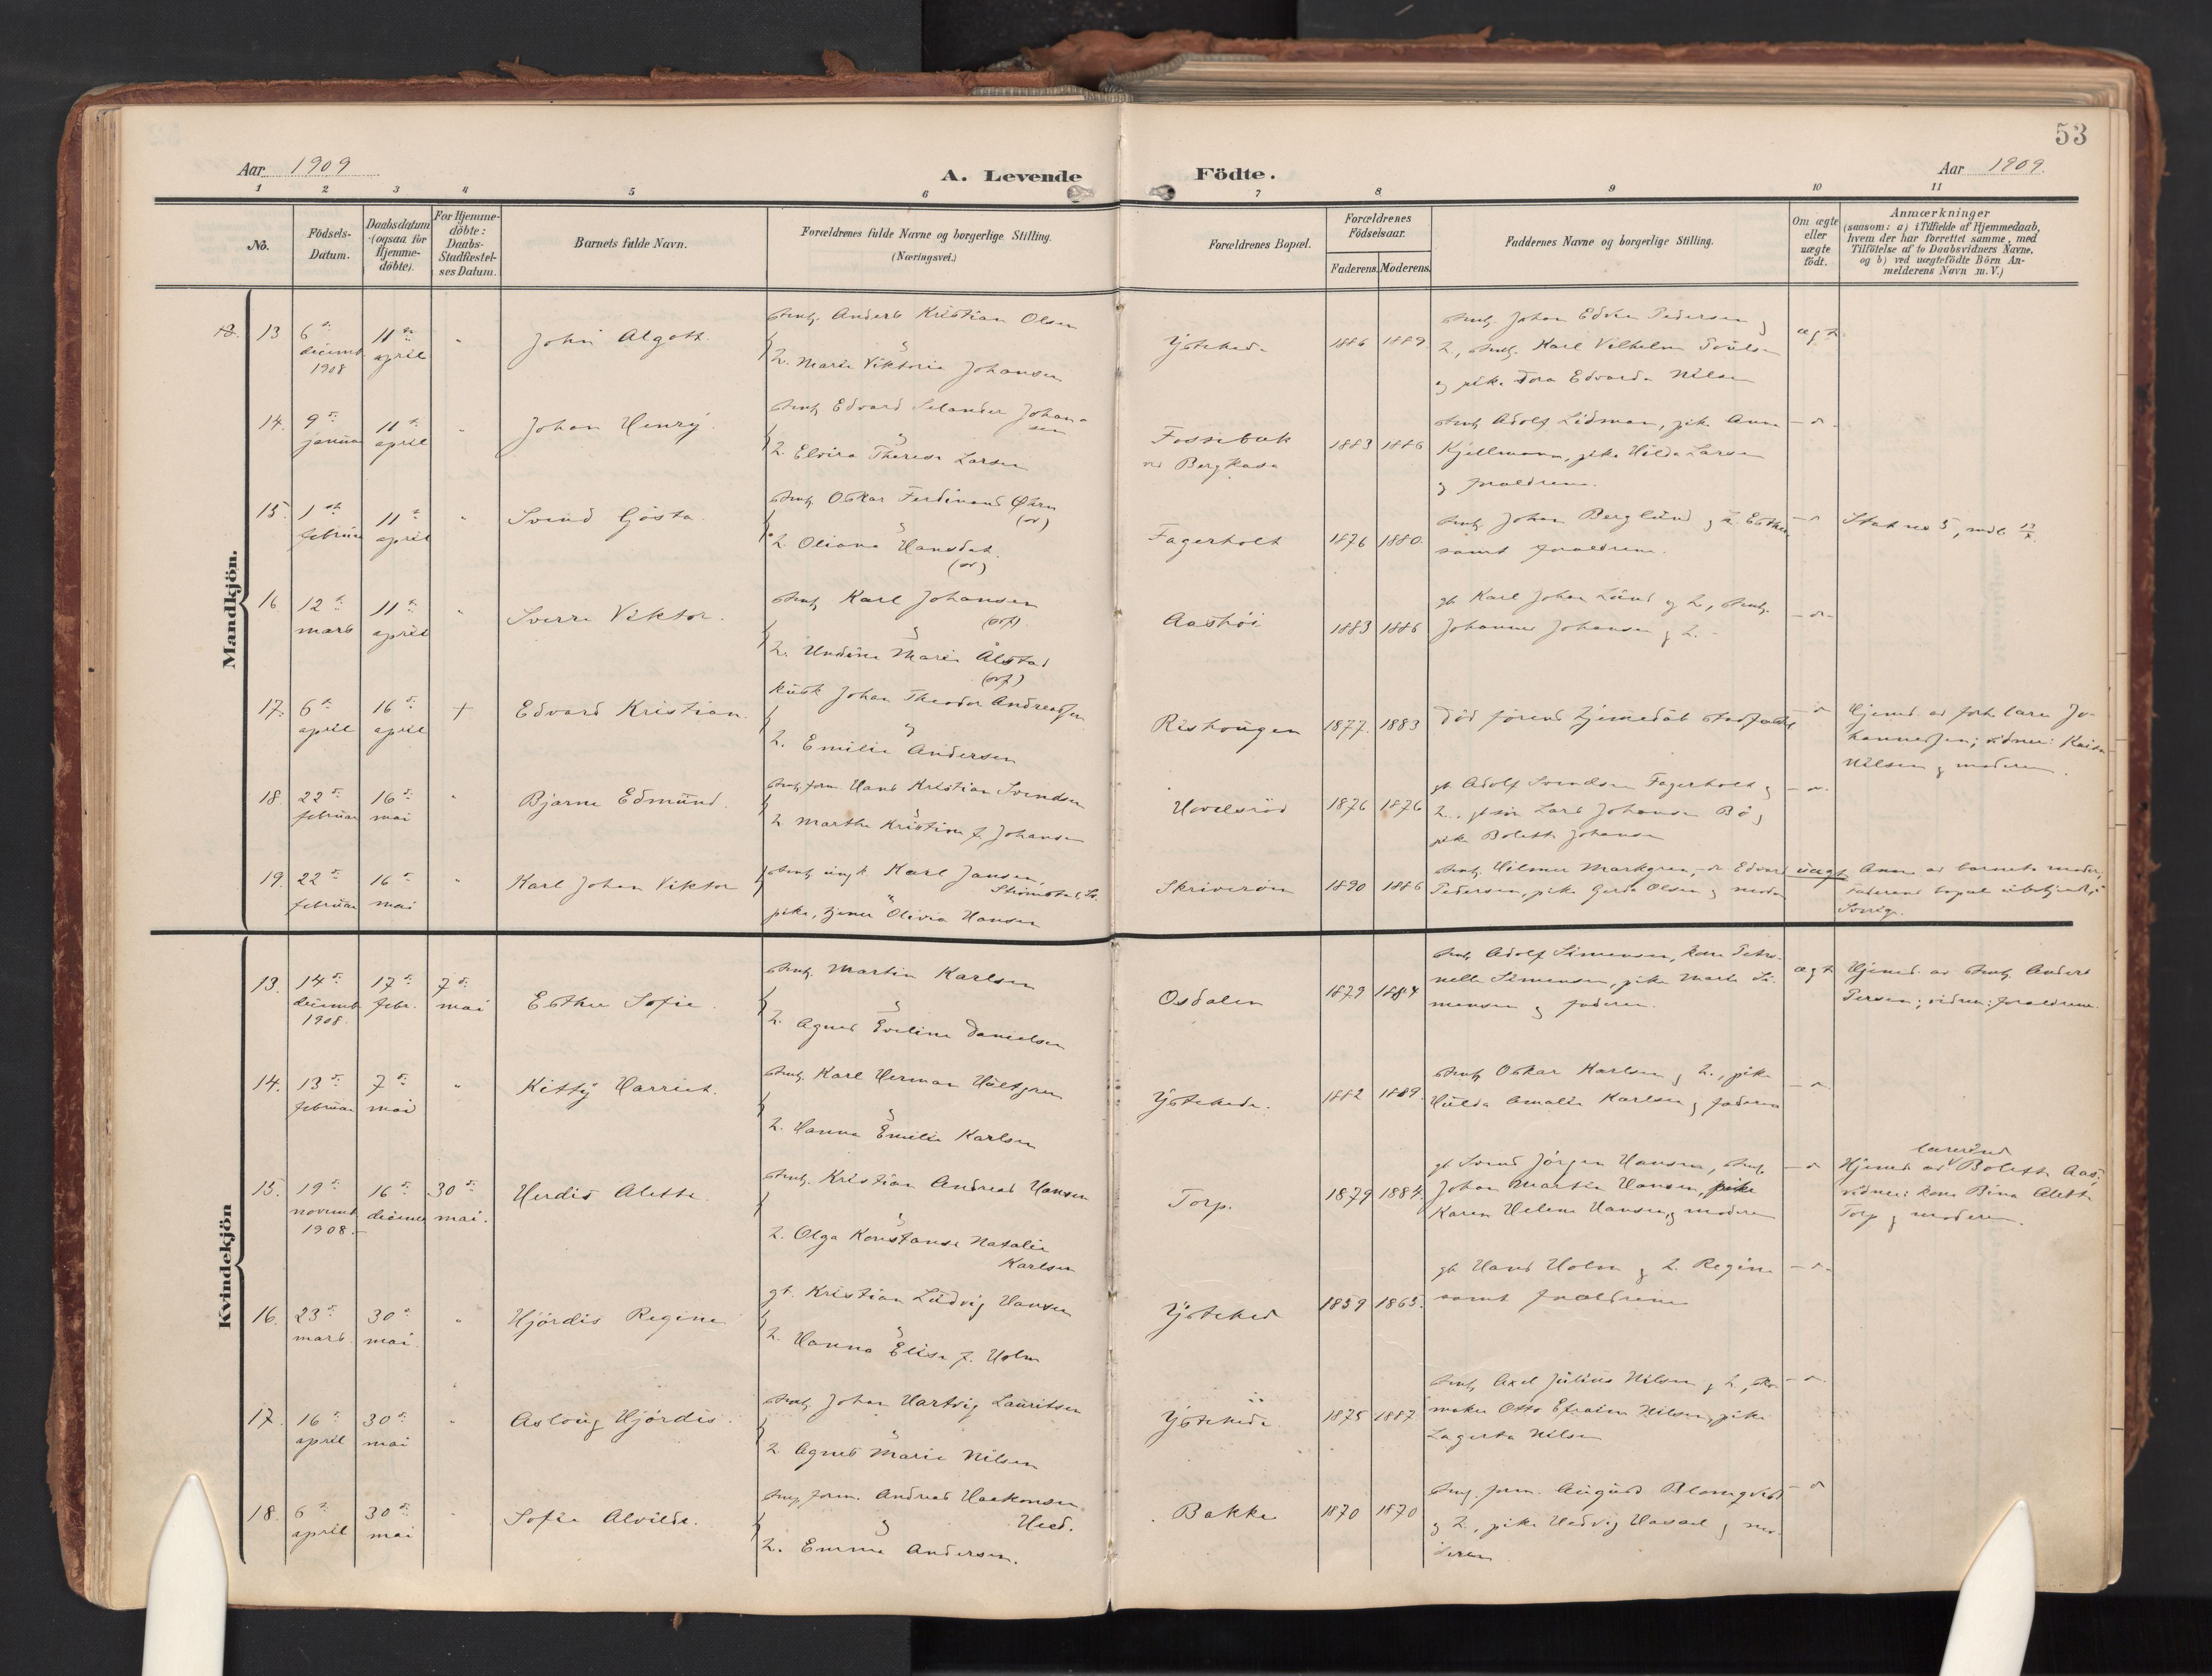 53
Aar 1909
A. Levende
Födte.
Aar 1909.
1 2 3 4 5 6 7 8 9 10 11
No.
Födsels-
Datum.
Daabsdatum
(ogsaa for
Hjemme-
döbte).
For Hjemme-
döbte:
Daabs-
Stadfæstel-
ses Datum.
Barnets fulde Navn.
Forældrenes fulde Navne og borgerlige Stilling.
(Næringsvei.)
Forældrenes Bopæl.
Forældrenes
Födselsaar.
Faderens. Moderens.
Faddernes Navne og borgerlige Stilling.
Om ægte
eller
uægte
født.
Anmærkninger
(saasom: a) i Tilfælde af Hjemmedaab,
hvem der har forrettet samme, med
Tilföielse af to Daabsvidners Navne,
og b) ved uægtefödte Börn An-
melderens Navn m.V.)
Mandkjön.
13
6te
decemb
1908
11te
april
John Algott
Stenh. Anders Kristian Olsen
og
h. Marie Viktoria Johansen
Ystehede
1886 1889
Stenh. Johan Edvin Pedersen og
h., stenh. Karl Vilhelm
og pike Dora Edvarda Nilsen
ægte
14.
9de
januar
11te
april
Johan Henry.
Stenh. Edvard Selander Johan-
sen
og
h. Elvira Therese Larsen
Fossebak
ved Bergkasa
1883 1886
Stenh. Adolf Lidman, pike Anna
Kjellmann, pike Hilda Larsen
og forældrene.
15.
1ste
februar
11te
april
Svend Gösta.
Stenh. Oskar Ferdinand Øhrn
og
h. Oliana Hansdat.
Fagerholt
1876 1880.
Stenh. Johan Berglund og h. Esther
samt forældrene.
16
12te
mars
11te
april
Sverre Viktor.
Stenh. Karl Johansen
og
h. Undine Marie Ålstad
Aashöi
1883 1886
gb. Karl Johan Lund og h., stenh.
Johannes Johansen og h.
17.
6te
april
16de
april
+
Edvard Kristian.
Kusk Johan Theodor Andreassen
og
h. Emilie Andersen
Rishaugen
1877. 1883
Död förend hjemmedaab stadfæstet
Hjemd. av forh. lærer Jo-
hannessen; vidner: Kaisa
Nilsen og moderen.
18.
22de
februar
16de
mai
Bjarne Edmund.
Stenh. form. Hans Kristian Svendsen
og
h. Marthe Kristine f. Johansen
Hovelsröd
1876 1876
gb. Adolf Svendsen Fagerholt og
h., Lars Johansen Bö og
pike Bolette Johansen
19.
22de
februar
16de
mai
Karl Johan Viktor
Stenh. ungk. Karl Jansen,
Strömstad, Sv.
og
pike, tjener Olivia Hansen
Skriverøen
1890 1886
Stenh. Hilmer Markgren, Edvard
Pedersen, pike Gerda Olsen og moderen
uægte
Anm. av barnets moder,
Faderens bopæl ubekjendt, i
Sverige.
Kvindekjön
13.
14de
decemb
1908.
17de
febr.
7de
mai
Esther Sofie.
Stenh. Martin Karlsen
og
h. Agnes Eveline Danielsen
Osdalen
1879 1884
Stenh. Adolf Simensen, kone Petro-
nelle Simensen, pike Marte Si-
mensen og faderen.
ægte
Hjemd. av stenh. Anders
Persen; vidner: forældrene.
14.
13de
februar
7de
mai
Kitty Harriet.
Stenh. Karl Herman Hultgren
og
h. Hanna Emilie Karlsen
Ystehede.
1882 1889.
Stenh. Oskar Karlsen og h., pike
Hulda Amalie Karlsen og faderen
15.
19de
novemb
1908.
16de
decemb
30de
mai.
Herdis Alette.
Stenh. Kristian Andreas Hansen
og
h. Olga Konstanse Natalie
Karlsen
Torp.
1879 1884.
gb. Svend Jörgen Hansen, stenh.
Johan Martin Hansen, pike
Karen Helene Hansen, og moderen
lærerinde
Hjemd. av Bolette Aas;
vidner: kone Bina Alette
Torp og moderen.
16.
23de
mars.
30de
mai.
Hjördis Regine
gb. Kristian Ludvig Hansen
og
h. Hanna Elise f. Holm
Ystehed
1859 1865.
gb. Hans Holm og h. Regine
samt forældrene
17.
16de
april
30de
mai
Aslaug Hjördis
Stenh. Johan Hartvig Lauritsen
og
h. Agnes Marie Nilsen
Ystehede
1875 1887
Stenh. Axel Julius Nilsen og h., sko-
maker Otto Efraim Nilsen, pike
Lagerta Nilsen
18.
6te
april
30de
mai
Sofie Alvilde.
Stenh. form. Andreas Haakonsen
Hed.
og
h. Emma Andersen.
Bakke
1870 1870
Stenh. form. August Blomqvist
og h., pike Hedvig Hassel og mo-
deren